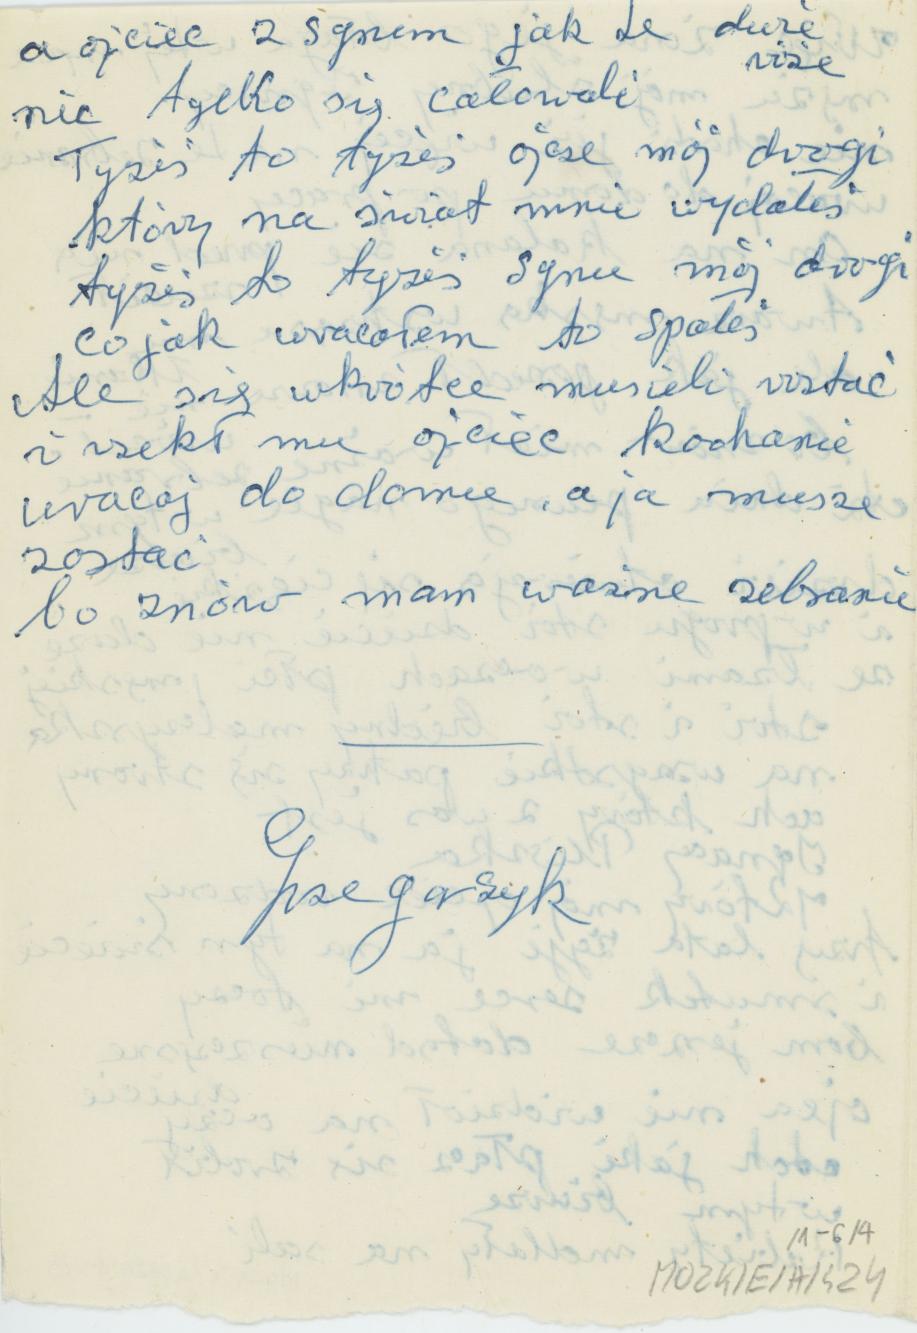 a ojciec z synem jak te duże
róże
nic tylko się całowali
Tyżeś to tyżeś ojcze mój drogi
który na świat mnie wydałeś
tyżeś to tyżeś synu mój drogi
co jak wracałem to spałeś
Ale się wkrótce musieli rostać
i rzekł mu ojciec kochanie
wracaj do domu, a ja musze
zostać
bo znów mam ważne zebranie
Grzegaszyk
11-6/4
MOZK/E/A/424